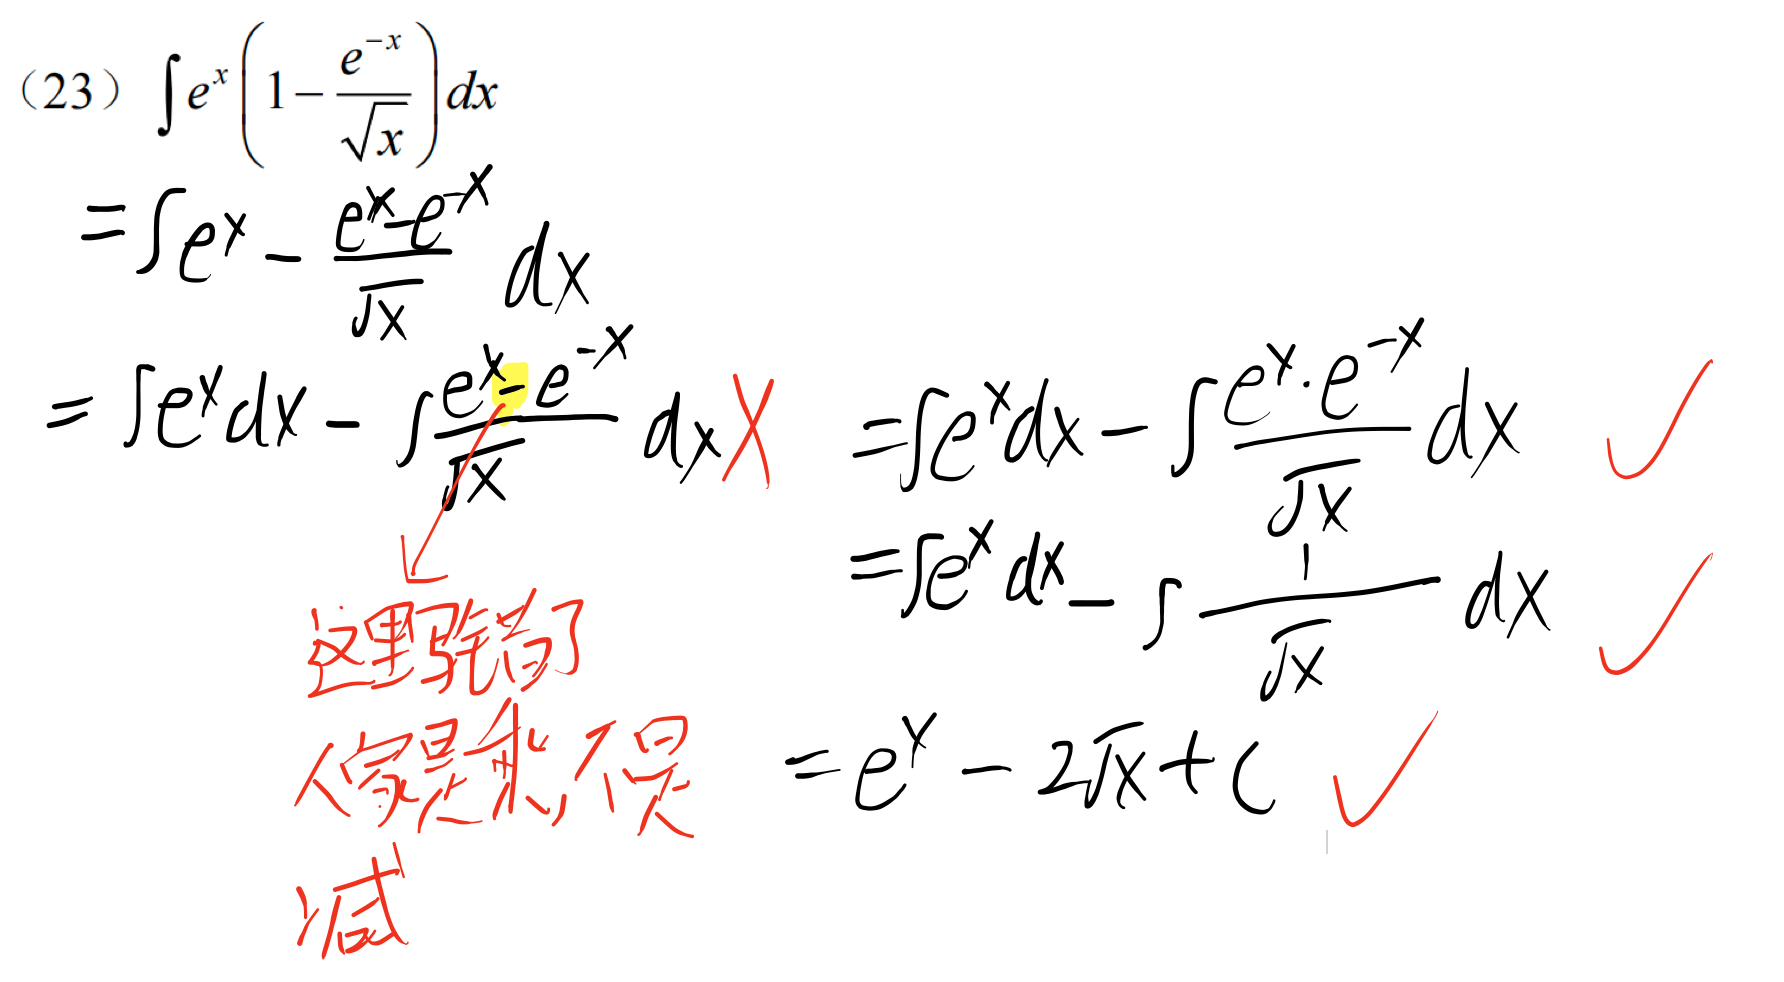 （23） ∫ e^x (1 − e^{−x}/√x) dx
= ∫ e^x − (e^x − e^{−x})/√x dx
= ∫ e^x dx − ∫ (e^x − e^{−x})/√x dx X
这里弄错了
人家是乘,不是
减
= ∫ e^x dx − ∫ (e^x · e^{−x})/√x dx ✓
= ∫ e^x dx − ∫ 1/√x dx ✓
= e^x − 2√x + C ✓